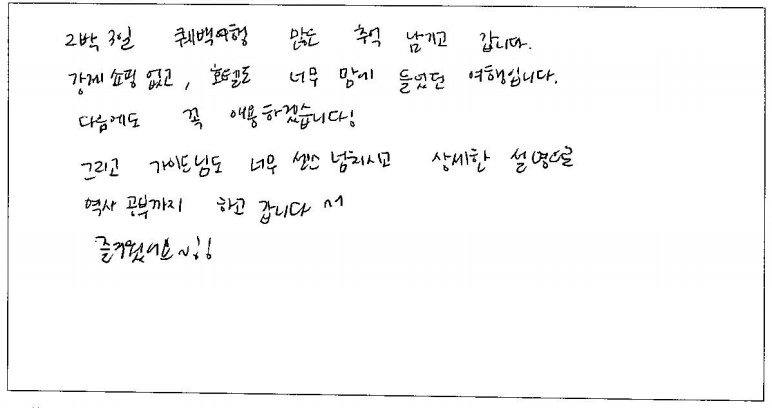 2박 3일 퀘백여행 많은 추억 남기고 갑니다.
강제 쇼핑 없고, 호텔도 너무 맘에 들었던 여행입니다.
다음에도 꼭 애용하겠습니다!
그리고 가이드님도 너무 센스 넘치시고 상세한 설명으로
역사 공부까지 하고 갑니다 ~
즐거웠어요~!!